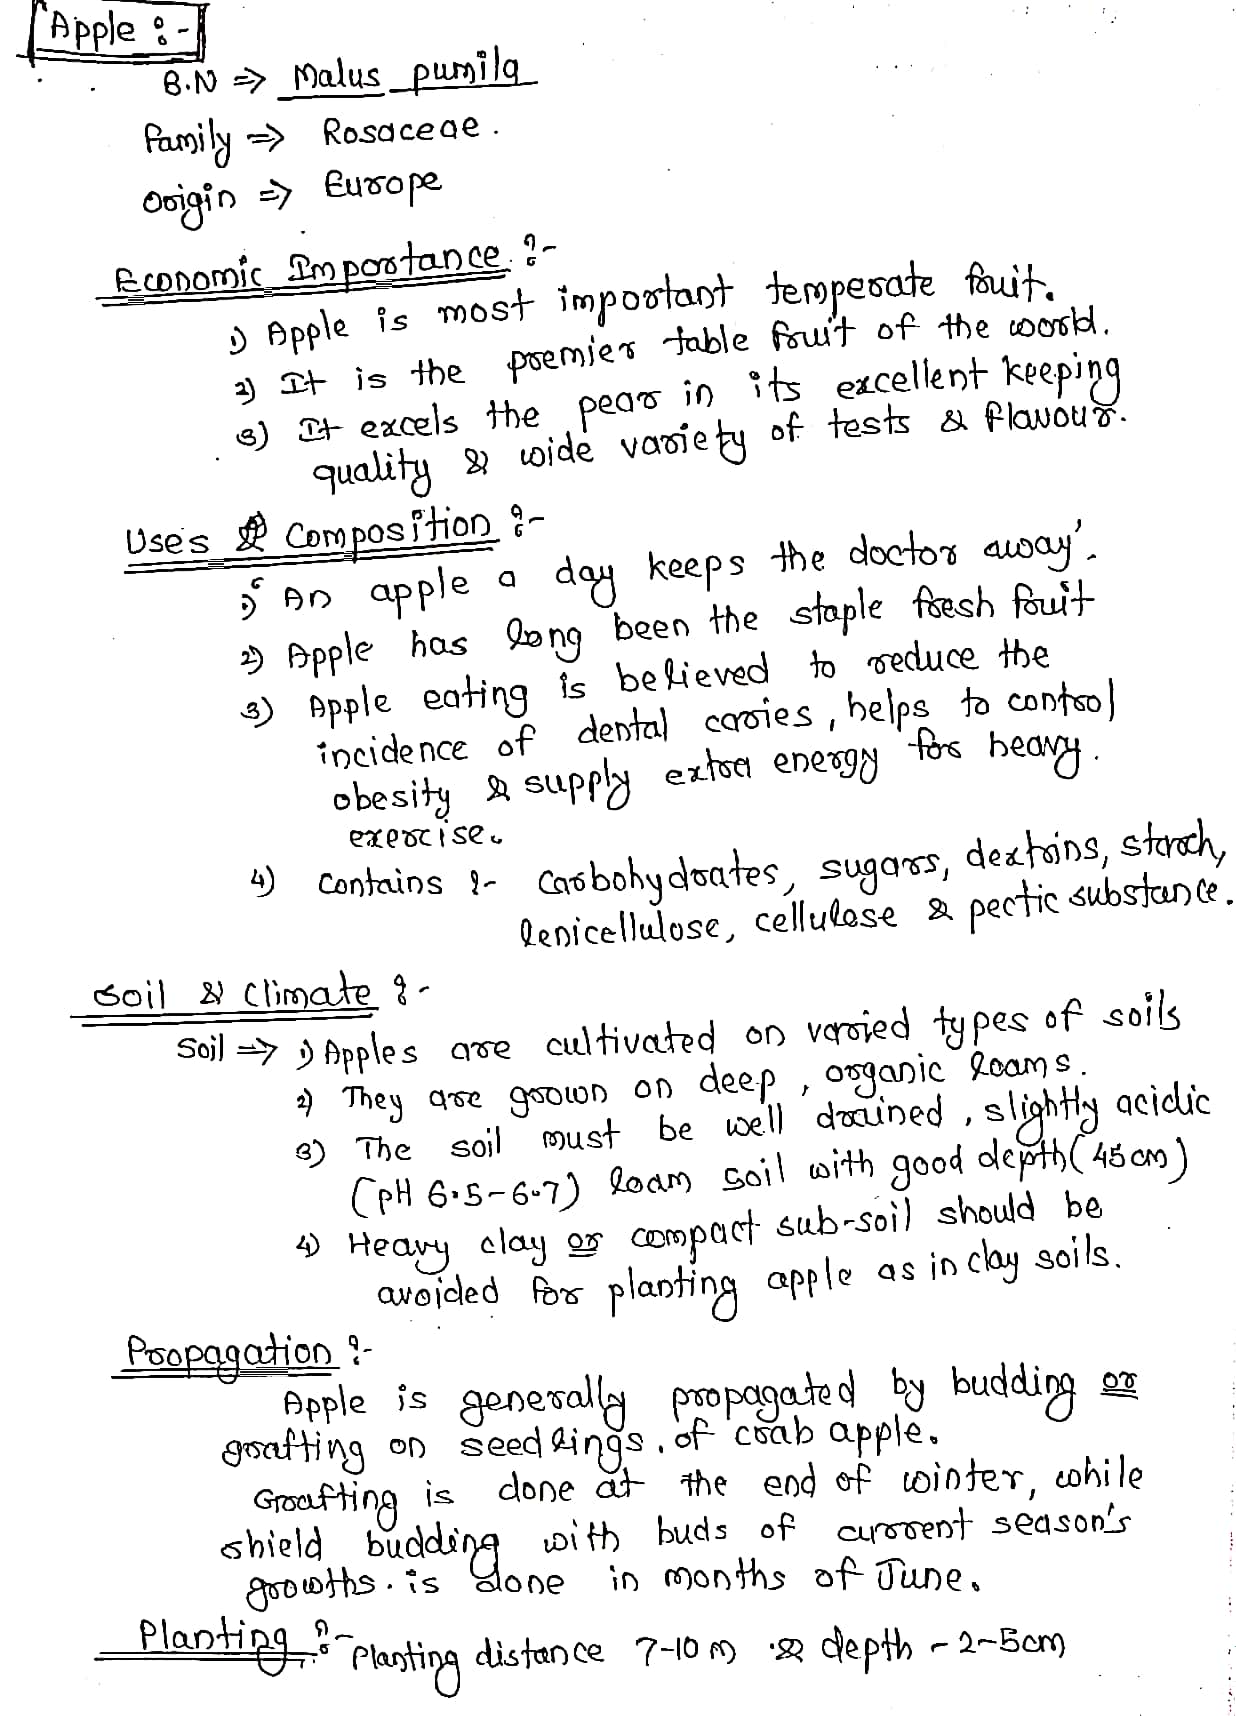 Apple :-
B.N ⇒ Malus pumila
Family ⇒ Rosaceae.
Origin ⇒ Europe
Economic Importance :-
1) Apple is most important temperate fruit.
2) It is the premier table fruit of the world.
3) It excels the pear in its excellent keeping
quality & wide variety of tests & flavour.
Uses & Composition :-
1) 'An apple a day keeps the doctor away'.
2) Apple has long been the staple fresh fruit
3) Apple eating is believed to reduce the
incidence of dental caries, helps to control
obesity & supply extra energy for heavy.
exercise.
4) Contains :- Carbohydrates, sugars, dextrins, starch,
lenicellulose, cellulose & pectic substance.
Soil & Climate :-
Soil ⇒ 1) Apples are cultivated on varied types of soils
2) They are grown on deep, organic loams.
3) The soil must be well drained, slightly acidic
(pH 6.5-6.7) loam soil with good depth (45cm)
4) Heavy clay or compact sub-soil should be
avoided for planting apple as in clay soils.
Propagation :-
Apple is generally propagated by budding or
grafting on seedlings. of crab apple.
Grafting is done at the end of winter, while
shield budding with buds of current season's
growths. is done in months of June.
Planting :- Planting distance 7-10 m & depth - 2-5cm